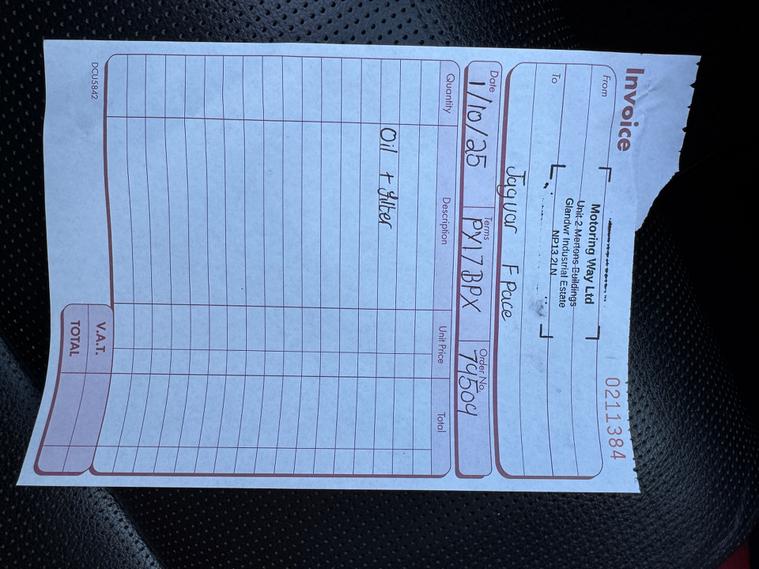 Invoice
0211384
From
Motoring Way Ltd
Unit 2 Mertons Buildings
Glandwr Industrial Estate
NP13 2LN
To
Jaguar F pace
Date Terms Order No.
1/10/25 PX17 BPX 79509
Quantity Description Unit Price Total
Oil + filter
V.A.T.
TOTAL
DCU5842